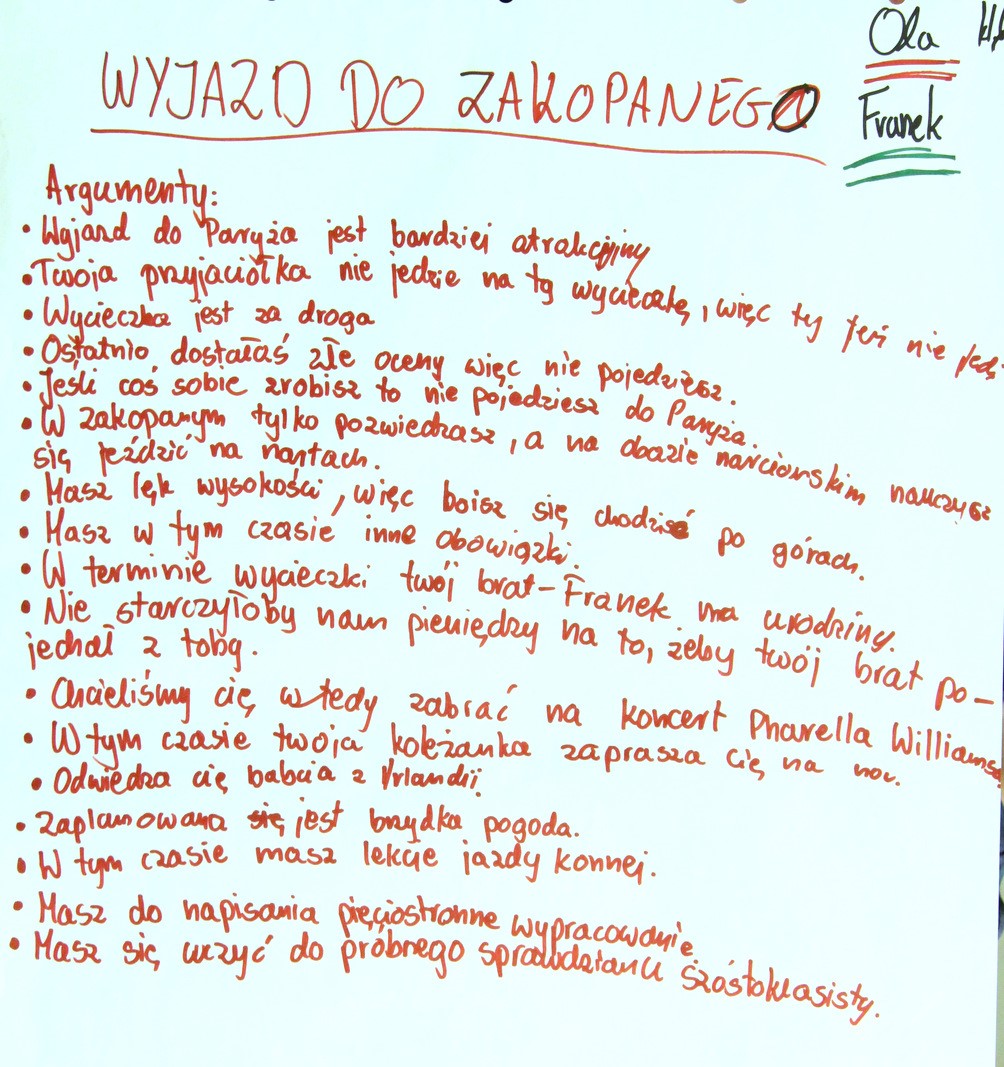 Ola
WYJAZD DO ZAKOPANEGO
Franek
Argumenty:
• Wyjazd do Paryża jest bardziej atrakcyjny
• Twoja przyjaciółka nie jedzie na tą wycieczkę, więc ty też nie
• Wycieczka jest za droga
• Ostatnio dostałaś złe oceny więc nie pojedziesz.
• Jeśli coś sobie zrobisz to nie pojedziesz do Paryża.
• W zakopanym tylko pozwiedzasz, a na obozie narciarskim nauczysz
się jeździć na nartach.
• Masz lęk wysokości, więc boisz się chodzić po górach.
• Masz w tym czasie inne obowiązki.
• W terminie wycieczki twój brat - Franek ma urodziny.
• Nie starczyłoby nam pieniędzy na to, żeby twój brat po-
jechał z tobą.
• Chcieliśmy cię wtedy zabrać na koncert Pharella Williamsa
• W tym czasie twoja koleżanka zaprasza cię na noc.
• Odwiedza cię babcia z Irlandii.
• Zaplanowana się jest brzydka pogoda.
• W tym czasie masz lekcie jazdy konnej.
• Masz do napisania pięciostronne wypracowanie
• Masz się uczyć do próbnego sprawdzianu szóstoklasisty.